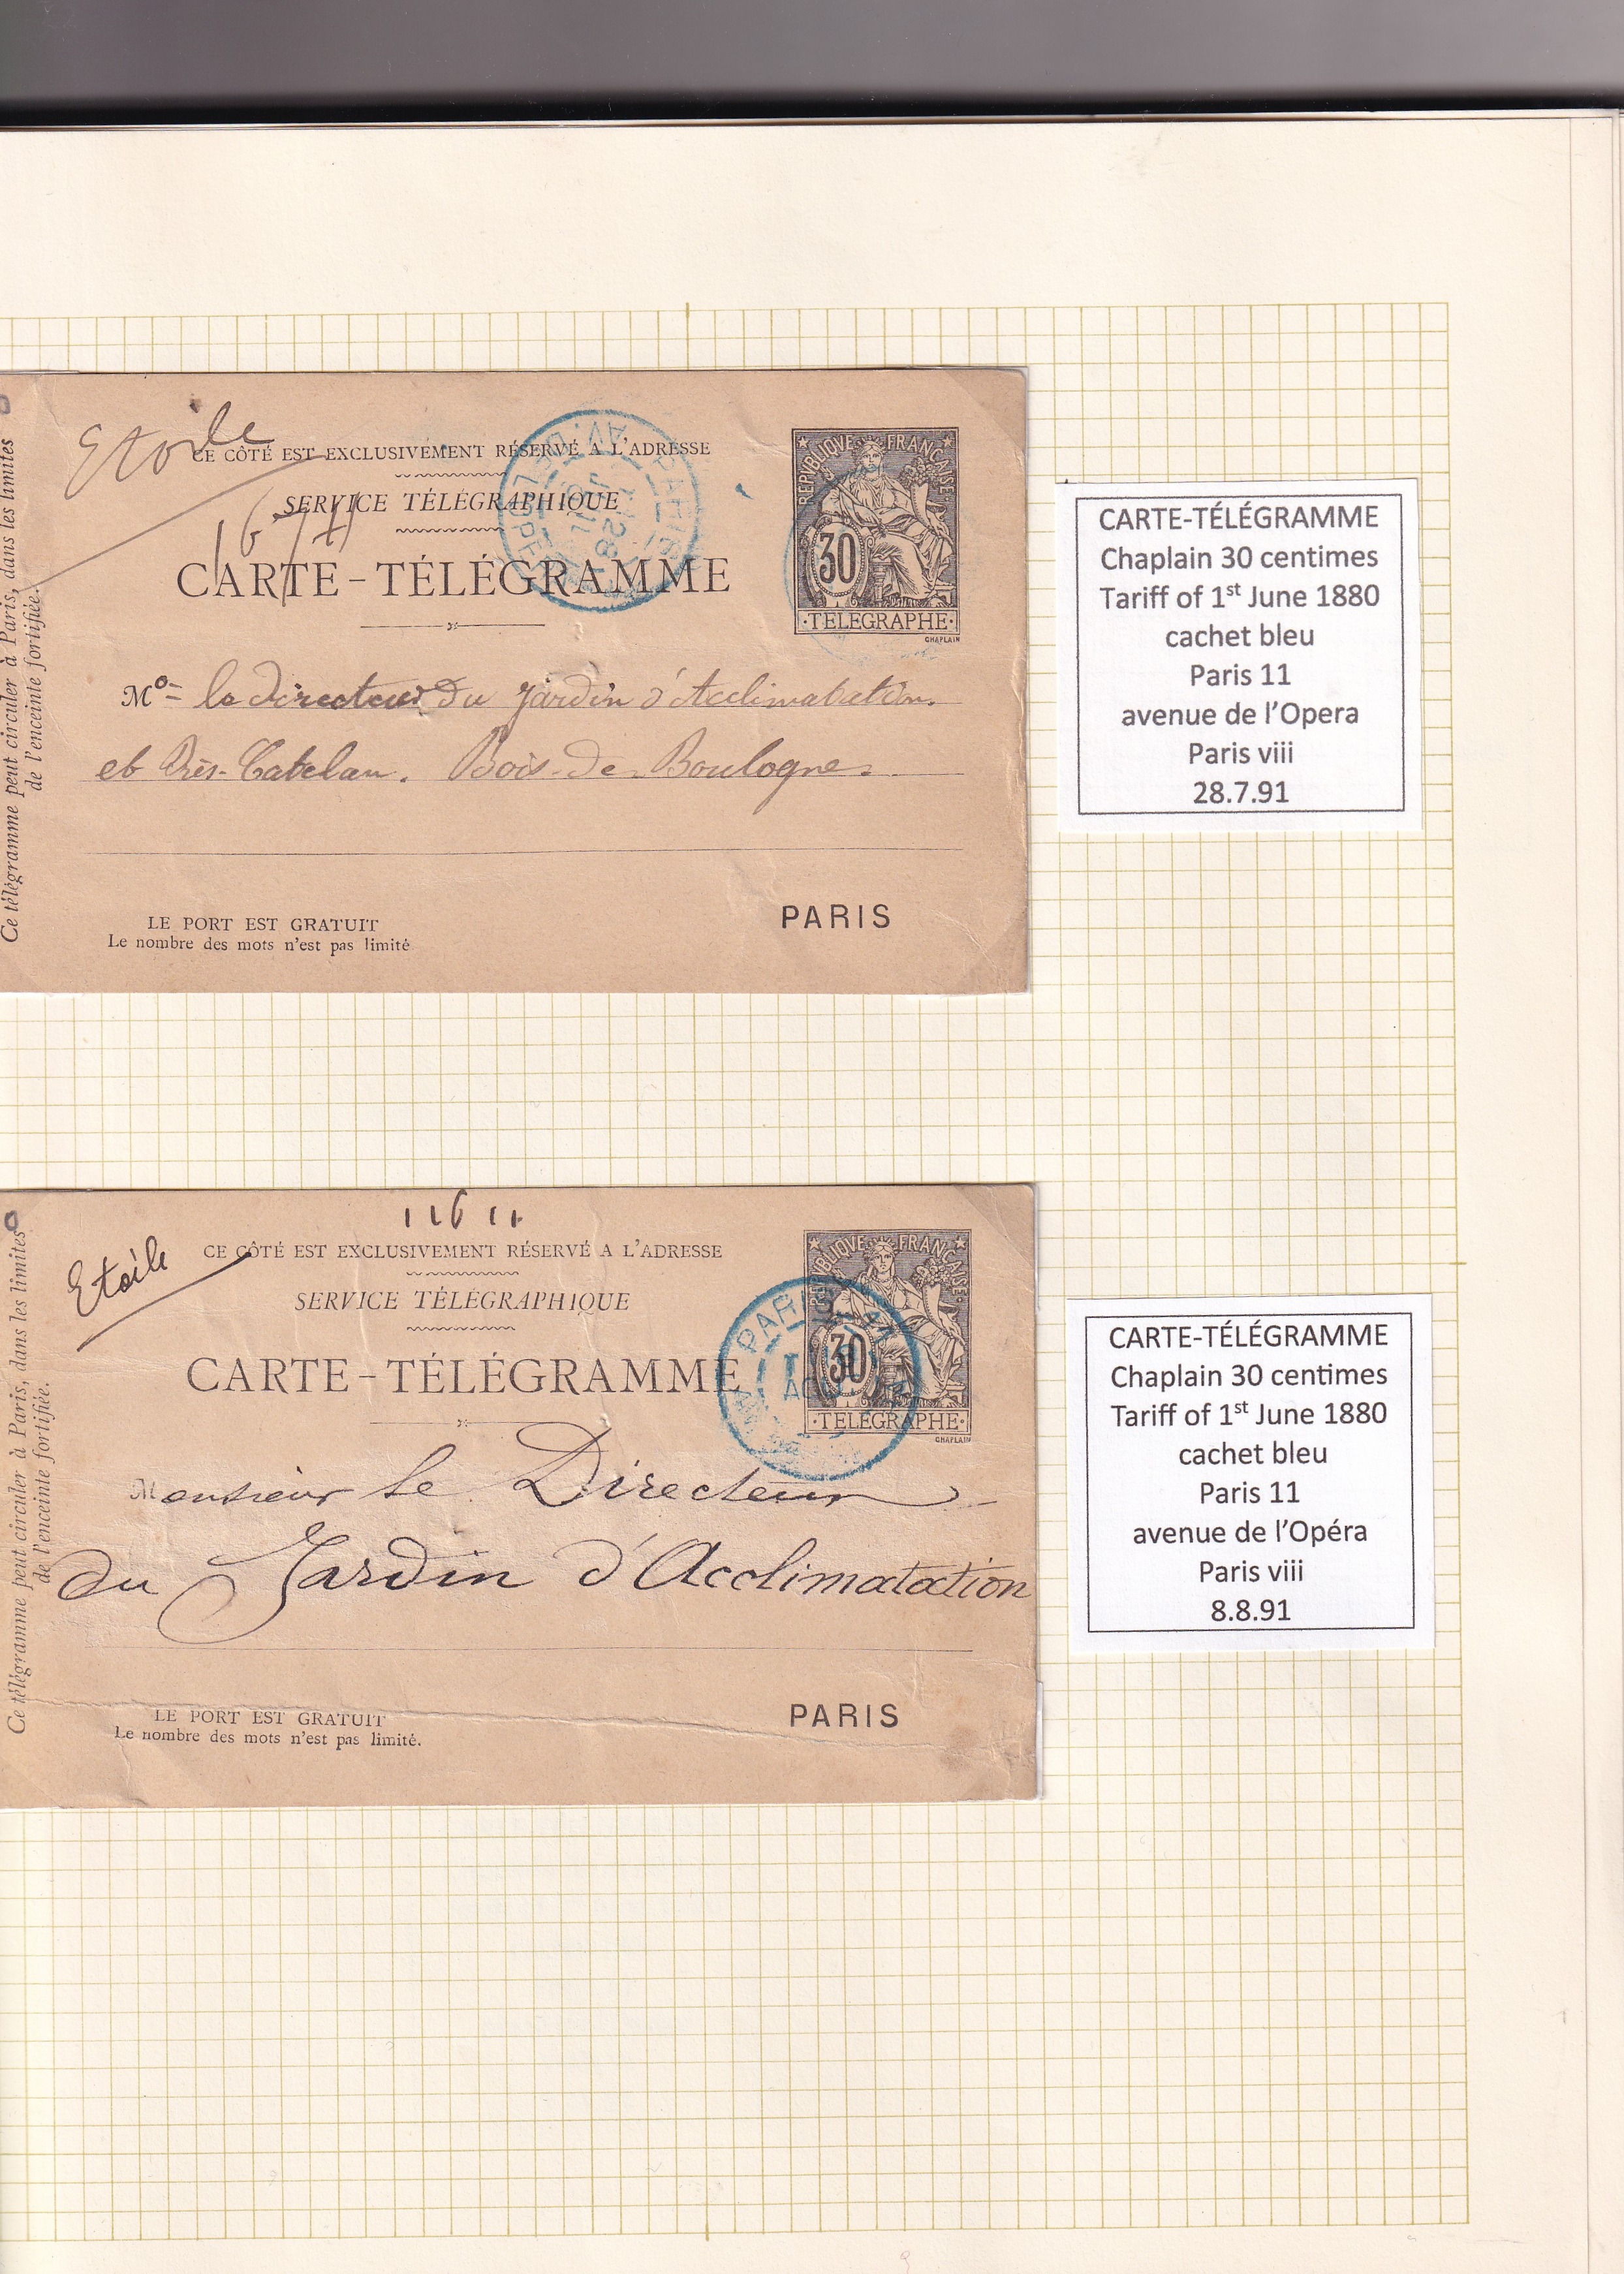 Etoile
CE CÔTÉ EST EXCLUSIVEMENT RÉSERVÉ A L'ADRESSE
SERVICE TÉLÉGRAPHIQUE
16 /
CARTE-TÉLÉGRAMME
REPUBLIQUE FRANCAISE
30
·TELEGRAPHE·
CHAPLAIN
Ce télégramme peut circuler à Paris, dans les limites
de l'enceinte fortifiée.
PARIS
28
Mº= le directeur du Jardin d'Acclimatation
et Près-Catelan. Bois-de-Boulogne.
PARIS
LE PORT EST GRATUIT
Le nombre des mots n'est pas limité
CARTE-TÉLÉGRAMME
Chaplain 30 centimes
Tariff of 1st June 1880
cachet bleu
Paris 11
avenue de l'Opera
Paris viii
28.7.91
Etoile
CE CÔTÉ EST EXCLUSIVEMENT RÉSERVÉ A L'ADRESSE
SERVICE TÉLÉGRAPHIQUE
CARTE-TÉLÉGRAMME
FRANCAISE
30
·TELEGRAPHE·
CHAPLAIN
PARIS
Ce télégramme peut circuler à Paris, dans les limites
de l'enceinte fortifiée.
Monsieur le Directeur
du Jardin d'Acclimatation
PARIS
LE PORT EST GRATUIT
Le nombre des mots n'est pas limité.
CARTE-TÉLÉGRAMME
Chaplain 30 centimes
Tariff of 1st June 1880
cachet bleu
Paris 11
avenue de l'Opéra
Paris viii
8.8.91